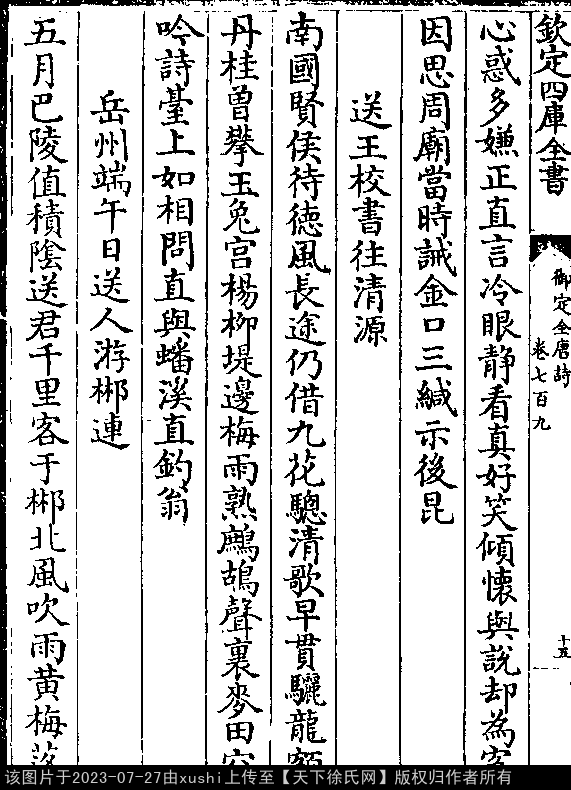 欽定四庫全書
御定全唐詩
卷七百九
十五
心惑多嫌正直言冷眼静看真好笑傾懷與說却為
因思周廟當時誡金口三緘示後昆
送王校書往清源
南國賢侯待德風長途仍借九花驄清歌早貫驪龍
丹桂曽攀玉兎宫楊栁堤邊梅雨熟鷓鴣聲裏麥田
吟詩臺上如相問直與蟠溪直釣翁
岳州端午日送人游郴連
五月巴陵值積隂送君千里客于郴北風吹雨黄梅落
该图片于2023-07-27由xushi上传至【天下徐氏网】版权归作者所有